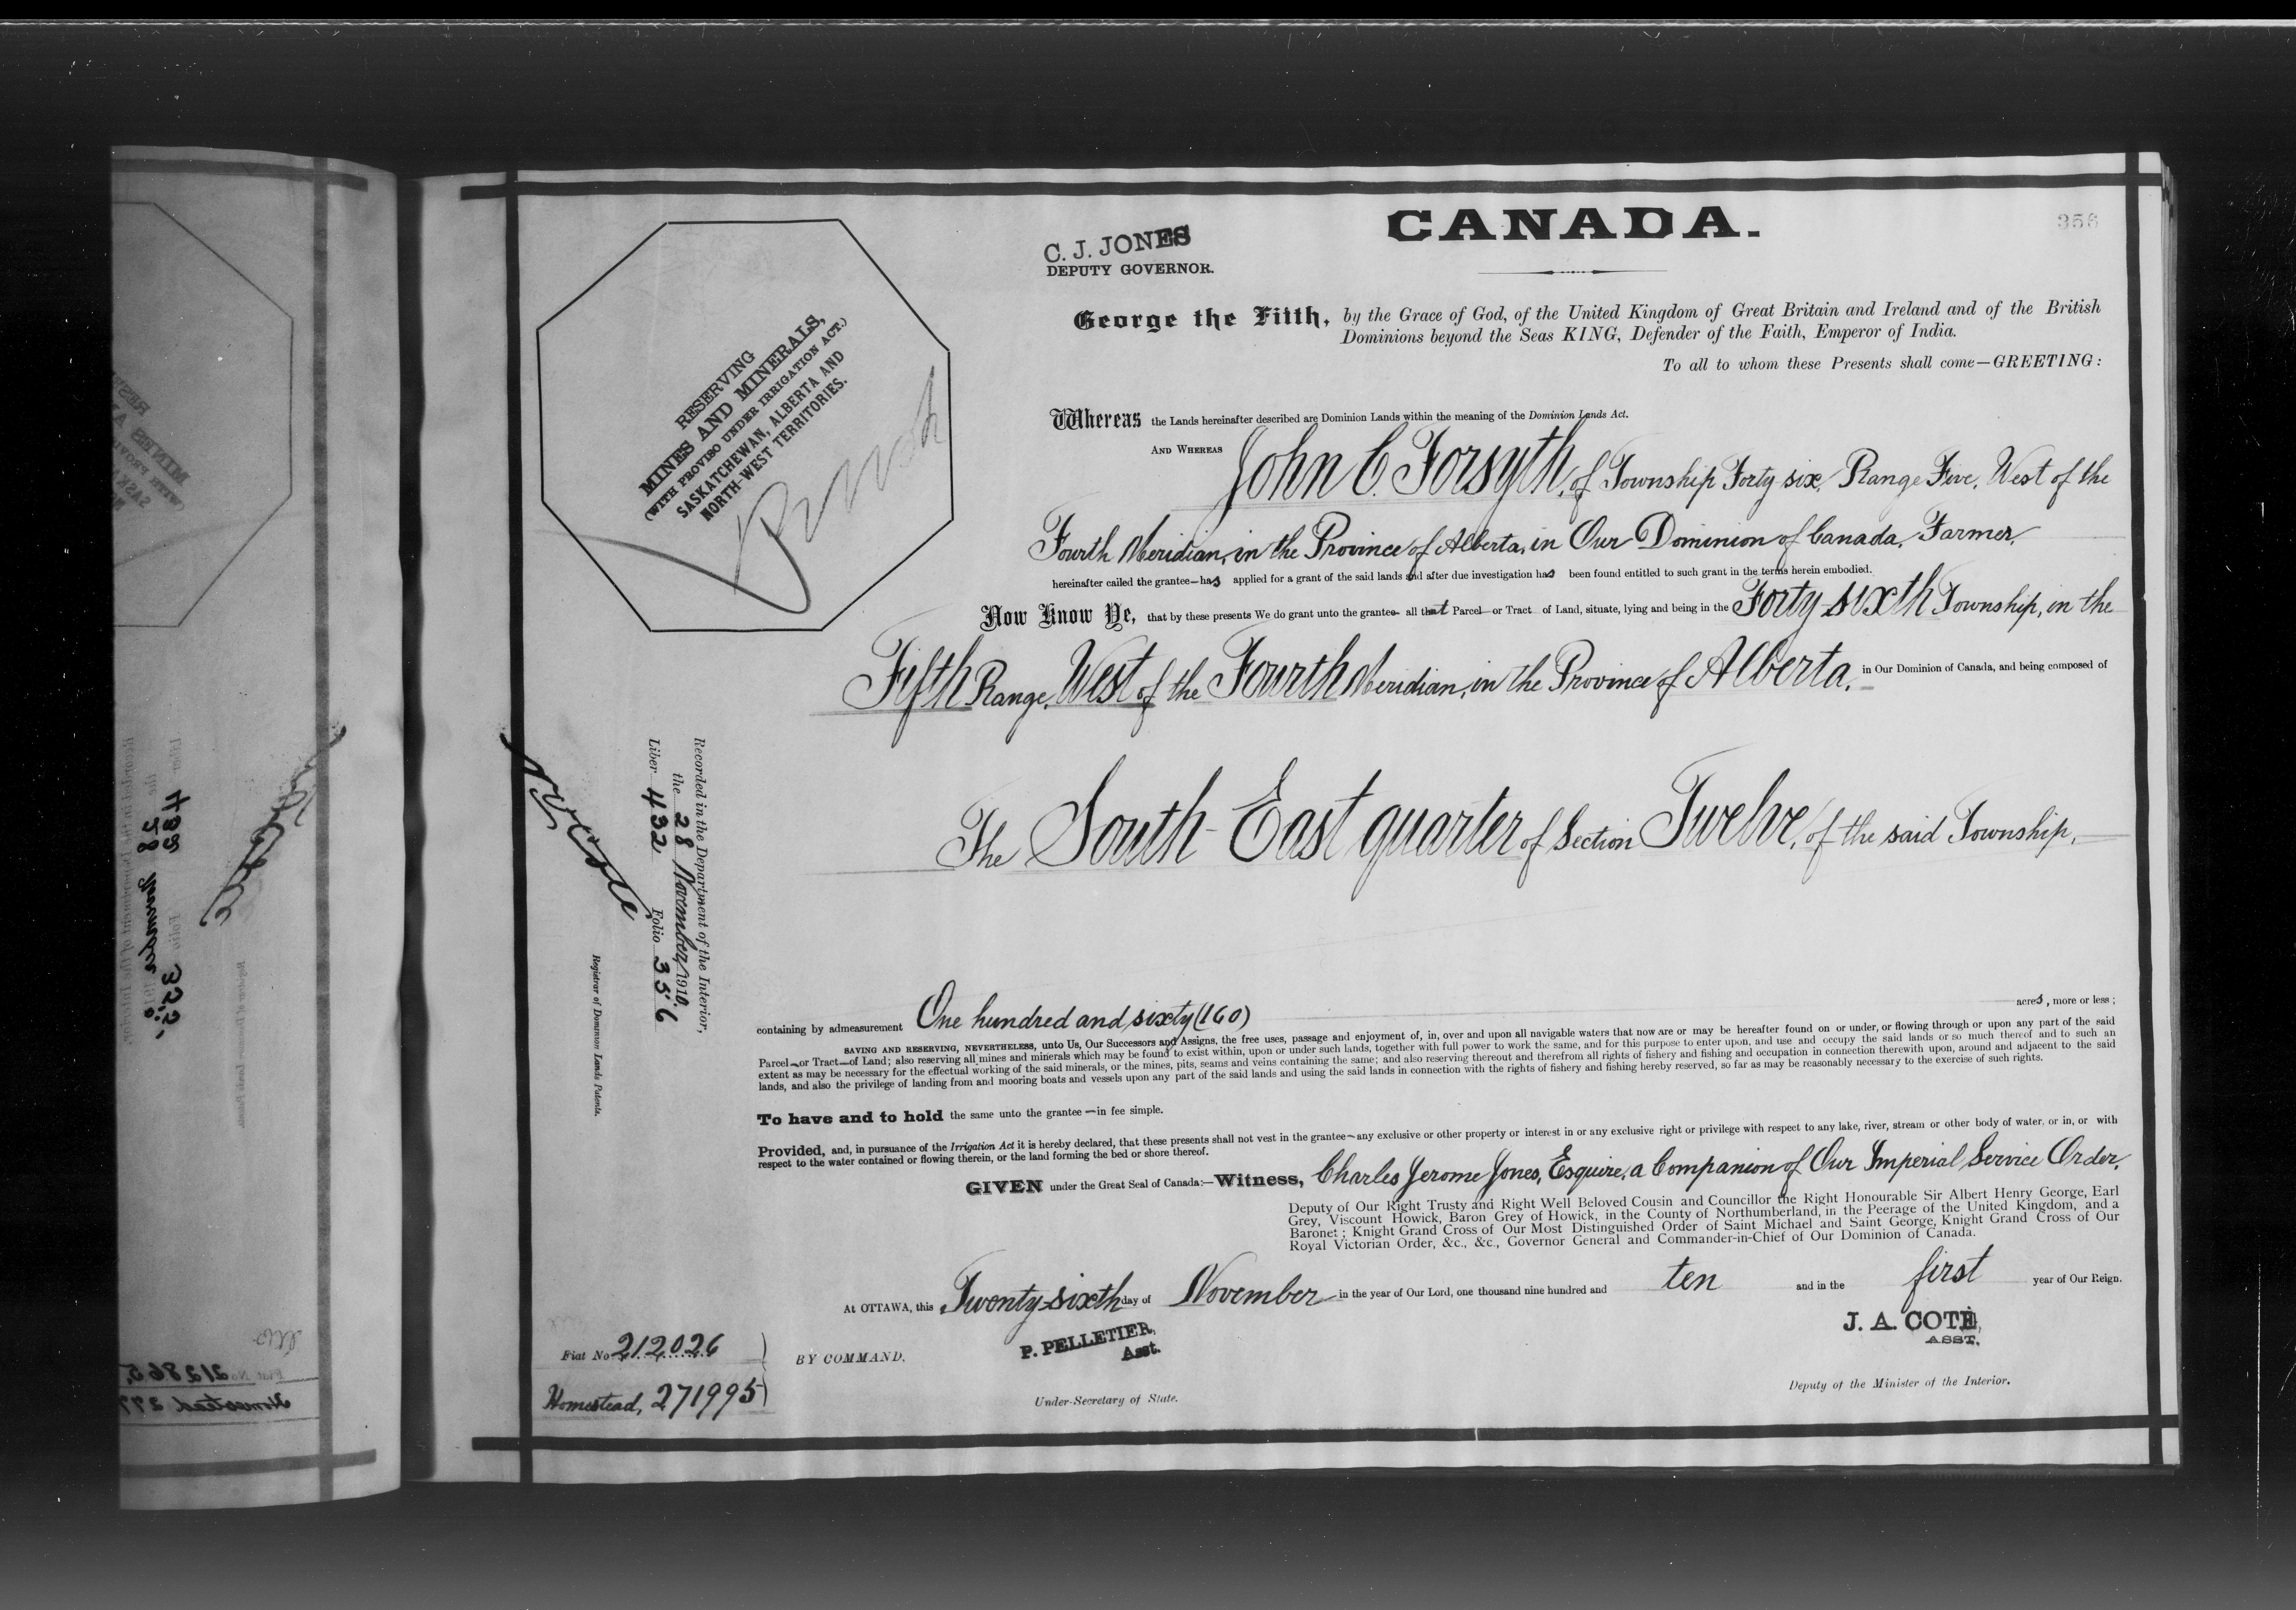 CANADA.
356
C. J. JONES
DEPUTY GOVERNOR.
George the Fifth, by the Grace of God, of the United Kingdom of Great Britain and Ireland and of the British
Dominions beyond the Seas KING, Defender of the Faith, Emperor of India.
To all to whom these Presents shall come—GREETING:
RESERVING
MINES AND MINERALS,
(WITH PROVISO UNDER IRRIGATION ACT.)
SASKATCHEWAN, ALBERTA AND
NORTH-WEST TERRITORIES.
Whereas the Lands hereinafter described are Dominion Lands within the meaning of the Dominion Lands Act.
AND WHEREAS John C. Forsyth, of Township Forty six, Range Five, West of the
Fourth Meridian, in the Province of Alberta, in Our Dominion of Canada, Farmer,
hereinafter called the grantee—has applied for a grant of the said lands and after due investigation has been found entitled to such grant in the terms herein embodied.
Now Know Ye, that by these presents We do grant unto the grantee— all that Parcel or Tract of Land, situate, lying and being in the Forty-sixth Township, in the
Fifth Range, West of the Fourth Meridian, in the Province of Alberta, in Our Dominion of Canada, and being composed of
The South-East quarter of Section Twelve, of the said Township,
Recorded in the Department of the Interior,
the 28 November, 1910.
Liber 432 Folio 356
Registrar of Dominion Lands Patents.
containing by admeasurement One hundred and sixty (160) acres, more or less;
SAVING AND RESERVING, NEVERTHELESS, unto Us, Our Successors and Assigns, the free uses, passage and enjoyment of, in, over and upon all navigable waters that now are or may be hereafter found on or under, or flowing through or upon any part of the said
Parcel—or Tract—of Land; also reserving all mines and minerals which may be found to exist within, upon or under such lands, together with full power to work the same, and for this purpose to enter upon, and use and occupy the said lands or so much thereof and to such an
extent as may be necessary for the effectual working of the said minerals, or the mines, pits, seams and veins containing the same; and also reserving thereout and therefrom all rights of fishery and fishing and occupation in connection therewith upon, around and adjacent to the said
lands, and also the privilege of landing from and mooring boats and vessels upon any part of the said lands and using the said lands in connection with the rights of fishery and fishing hereby reserved, so far as may be reasonably necessary to the exercise of such rights.
To have and to hold the same unto the grantee —in fee simple.
Provided, and, in pursuance of the Irrigation Act it is hereby declared, that these presents shall not vest in the grantee—any exclusive or other property or interest in or any exclusive right or privilege with respect to any lake, river, stream or other body of water, or in, or with
respect to the water contained or flowing therein, or the land forming the bed or shore thereof.
GIVEN under the Great Seal of Canada:—Witness, Charles Jerome Jones, Esquire, a Companion of Our Imperial Service Order,
Deputy of Our Right Trusty and Right Well Beloved Cousin and Councillor the Right Honourable Sir Albert Henry George, Earl
Grey, Viscount Howick, Baron Grey of Howick, in the County of Northumberland, in the Peerage of the United Kingdom, and a
Baronet; Knight Grand Cross of Our Most Distinguished Order of Saint Michael and Saint George, Knight Grand Cross of Our
Royal Victorian Order, &c., &c., Governor General and Commander-in-Chief of Our Dominion of Canada.
At OTTAWA, this Twenty-sixth day of November in the year of Our Lord, one thousand nine hundred and ten and in the first year of Our Reign.
Fiat No 212026
Homestead, 271995
BY COMMAND,
P. PELLETIER,
Asst.
Under-Secretary of State.
J. A. COTÉ,
ASST.
Deputy of the Minister of the Interior.